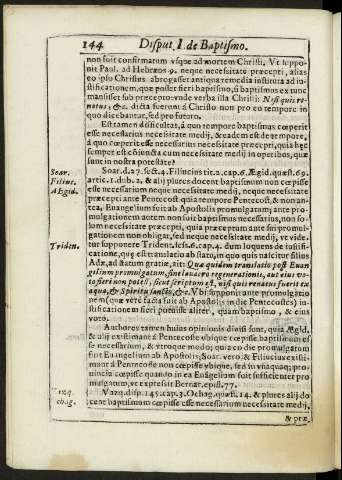 144 Disput. I. de Baptismo.
non fuit confirmatum vsque ad mortem Christi. Vt suppo-
nit Paul. ad Hebræos 9. neque necessitate præcepti, alias
eo ipso Christus abrogasset antiqua remedia instituta ad iu-
stificationem, quæ potest fieri baptismo, si baptismus ex tunc
mansisset sub præcepto: vnde verba illa Christi: Nisi quis re-
natus, &c. dicta fuerunt à Christo non pro eo tempore in
quo dicebantur, sed pro futuro.
Est tamen difficultas, à quo tempore baptismus cœperit
esse necessarius necessitate medij, & eadem est de tempore,
à quo cœperit esse necessarius necessitate præcepti, quia hęc
semper est cōiuncta cum necessitate medij in operibus, quæ
sunt in nostra potestate?
Soar.
Filiuc.
Ægid.
Soar. d. 27. sect. 4. Filiucius tit. 2. cap. 6. Ægid. quæst. 69.
artic. 1. dub. 2. & alij plures docent baptismum non cœpisse
esse necessarium neque necessitate medij, neque necessitate
præcepti ante Pentecost quia nempe Pentecost. & non an-
tea, Euangelium fuit ab Apostolis promulgatum; ante pro-
mulgationem autem non fuit baptismus necessarius, non so-
lum necessitate præcepti, quia præceptum ante sui promul-
gationem non obligat, sed neque necessitate medij, vt vide-
Triden.
tur supponere Trident. sess. 6. cap. 4. dum loquens de iustifi-
catione, quę est translatio ab statu, in quo quis nascitur filius
Adæ, ad statum gratiæ, ait: Quæ quidem translatio post Euan
gelium promulgatum, sine lauacro regenerationis, aut eius vo-
to fieri non potest, sicut scriptum est, nisi quis renatus fuerit ex
aqua, & Spiritu sancto, &c. Vbi supponit ante promulgatio
nem (quæ verè facta fuit ab Apostolis in die Pentecostes) iu-
stificationem fieri potuisse aliter, quàm baptismo, & eius
voto.
Authores tamen huius opinionis diuisi sunt, quia Ægid.
& alij existimant à Pentecoste vbique cœpisse baptismum es
se necessarium, & vtroque modo; quia eo die promulgatum
fuit Euangelium ab Apostolis; Soar. verò, & Filiucius existi-
mant à Pentecoste non cœpisse vbique, sed in vnaquaq; pro-
uincia cœpisse quando in ea Euāgelium fuit sufficienter pro
mulgatum, vt expresit Bernar. epist. 77.
Vazq.
Ochag.
Vazq. disp. 145. cap. 3. Ochag. quæst. 14. & plures alij do
cent baptismum cœpisse esse necessarium necessitate medij,
& præ